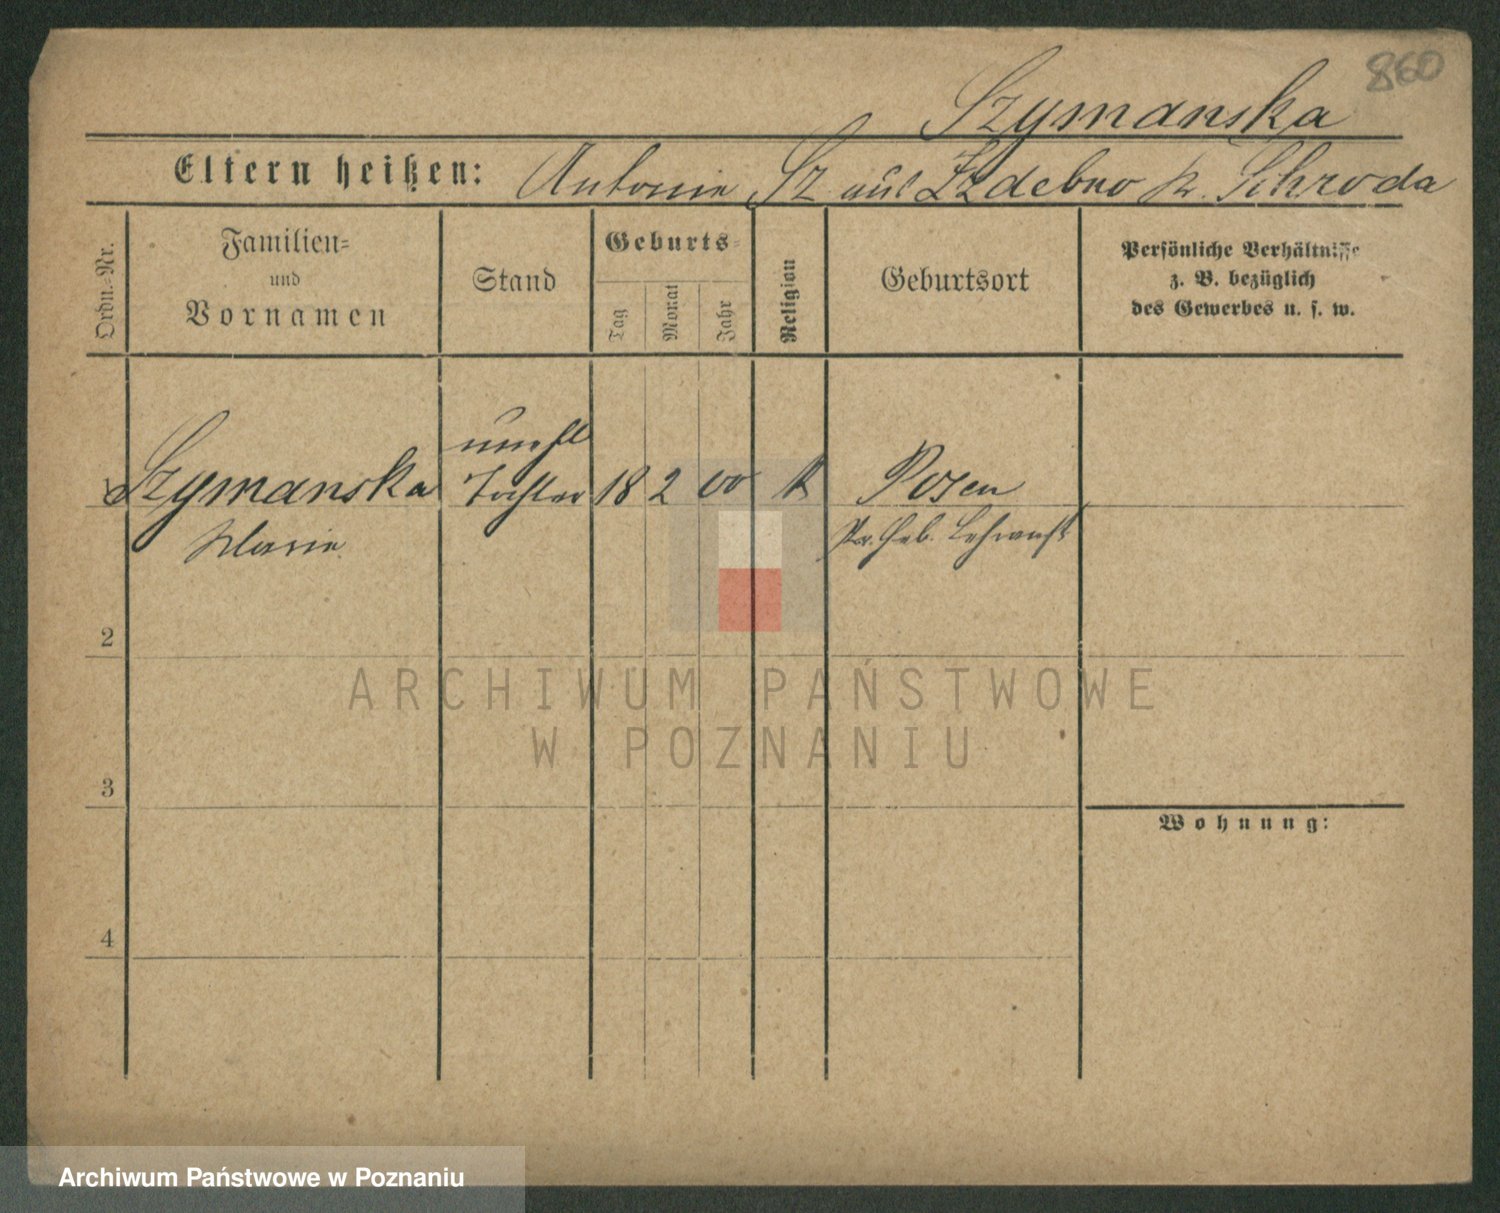 860
Szymanska
Eltern heißen: Antonie Sz aus Izdebno Kr. Schroda
Ordn.-Nr.
Familien-
und
Vornamen
Stand
Geburts-
Tag
Monat
Jahr
Religion
Geburtsort
Persönliche Verhältnisse
z. B. bezüglich
des Gewerbes u. s. w.
unehl
Szymanska Tochter 18 2 00 K Posen
Marie Pr. Heb. Lehranst
2
ARCHIWUM PAŃSTWOWE
W POZNANIU
3
Wohnung:
4
Archiwum Państwowe w Poznaniu